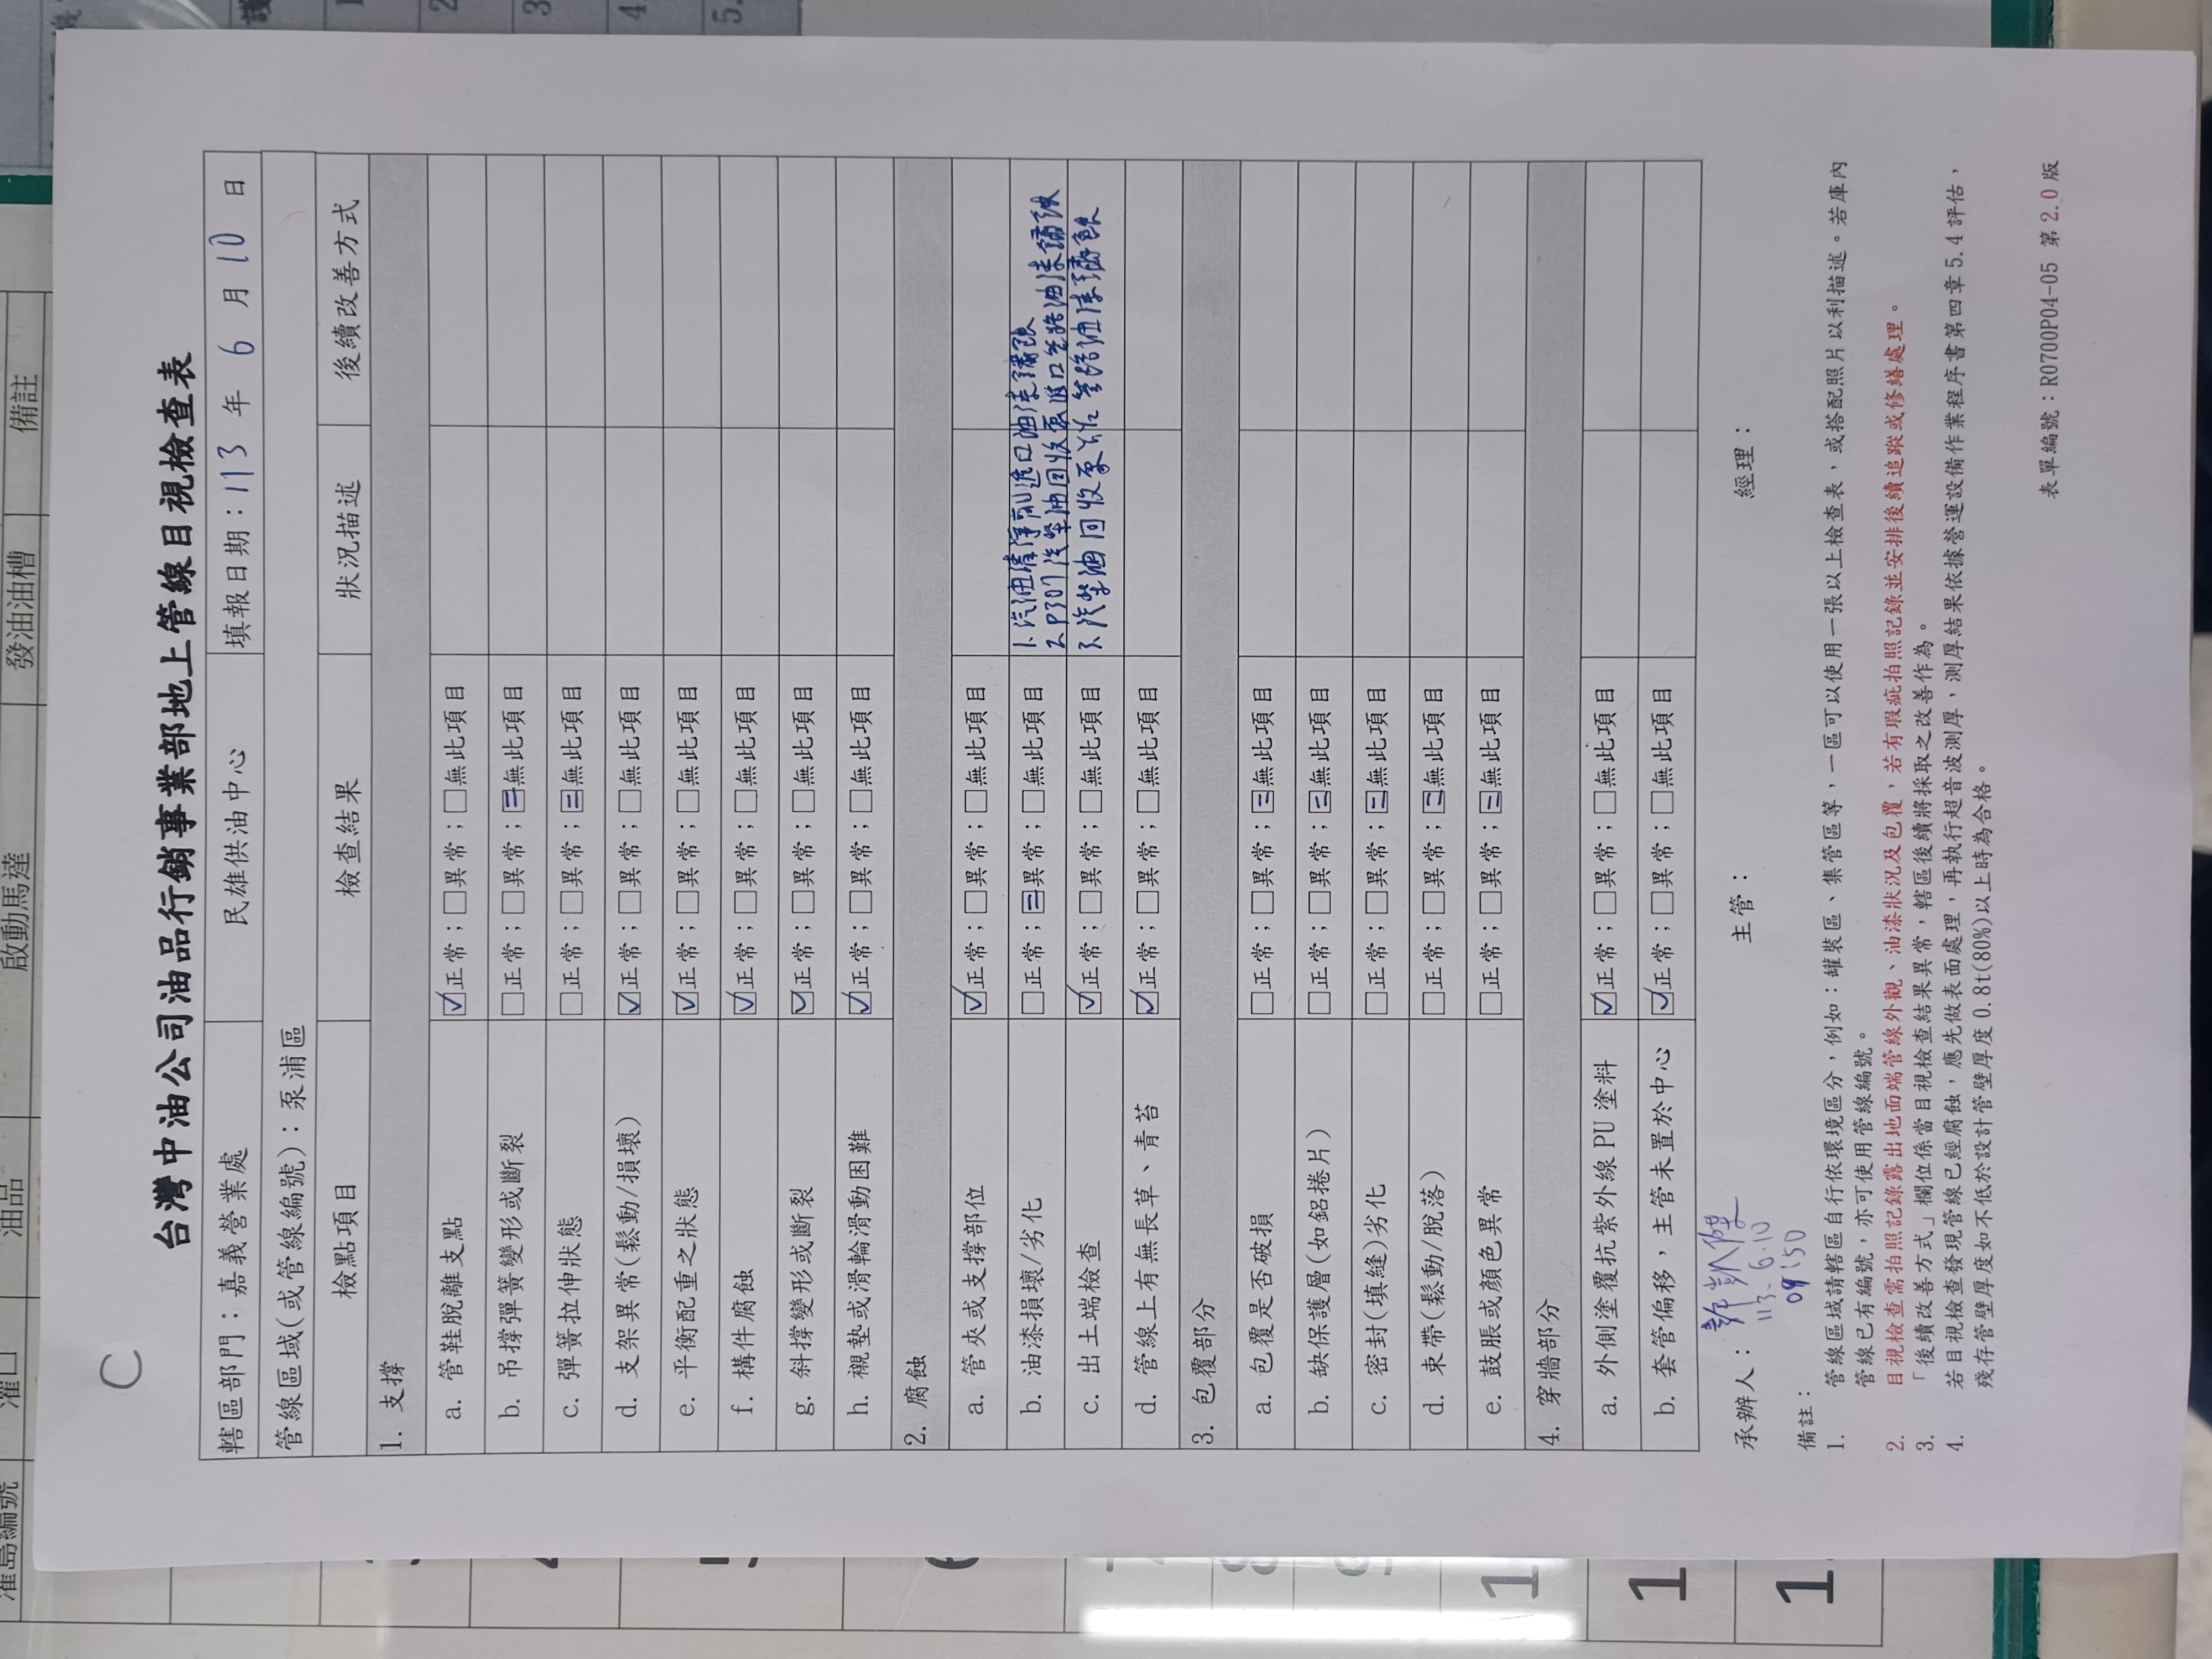 灌島編號 灌口 油品 啟動馬達 發油油槽 備註
C
台灣中油公司油品行銷事業部地上管線目視檢查表
轄區部門：嘉義營業處 民雄供油中心 填報日期：113 年 6 月 10 日
管線區域(或管線編號)：泵浦區
檢點項目 檢查結果 狀況描述 後續改善方式
1. 支撐
a. 管鞋脫離支點 ☑正常；☐異常；☐無此項目
b. 吊撐彈簧變形或斷裂 ☐正常；☐異常；☑無此項目
c. 彈簧拉伸狀態 ☐正常；☐異常；☑無此項目
d. 支架異常(鬆動/損壞) ☑正常；☐異常；☐無此項目
e. 平衡配重之狀態 ☑正常；☐異常；☐無此項目
f. 構件腐蝕 ☑正常；☐異常；☐無此項目
g. 斜撐變形或斷裂 ☑正常；☐異常；☐無此項目
h. 襯墊或滑輪滑動困難 ☑正常；☐異常；☐無此項目
2. 腐蝕
a. 管夾或支撐部位 ☑正常；☐異常；☐無此項目
b. 油漆損壞/劣化 ☐正常；☑異常；☐無此項目 1. 汽油清淨劑進口油漆鏽蝕
2. P307汽柴油回收泵進口管路油漆鏽蝕
c. 出土端檢查 ☑正常；☐異常；☐無此項目 3. 汽柴油回收泵 管路油漆鏽蝕
d. 管線上有無長草、青苔 ☑正常；☐異常；☐無此項目
3. 包覆部分
a. 包覆是否破損 ☐正常；☐異常；☑無此項目
b. 缺保護層(如鋁捲片) ☐正常；☐異常；☑無此項目
c. 密封(填縫)劣化 ☐正常；☐異常；☑無此項目
d. 束帶(鬆動/脫落) ☐正常；☐異常；☑無此項目
e. 鼓脹或顏色異常 ☐正常；☐異常；☑無此項目
4. 穿牆部分
a. 外側塗覆抗紫外線 PU 塗料 ☑正常；☐異常；☐無此項目
b. 套管偏移，主管未置於中心 ☑正常；☐異常；☐無此項目
承辦人：許凱傑 主管： 經理：
113.6.10
09:50
備註：
1. 管線區域請轄區自行依環境區分，例如：罐裝區、集管區等，一區可以使用一張以上檢查表，或搭配照片以利描述。若庫內
管線已有編號，亦可使用管線編號。
2. 目視檢查需拍照記錄露出地面端管線外觀、油漆狀況及包覆，若有瑕疵拍照記錄並安排後續追蹤或修繕處理。
3. 「後續改善方式」欄位係當目視檢查結果異常，轄區後續將採取之改善作為。
4. 若目視檢查發現管線已經腐蝕，應先做表面處理，再執行超音波測厚，測厚結果依據營運設備作業程序書第四章 5.4 評估，
殘存管壁厚度如不低於設計管壁厚度 0.8t(80%)以上時為合格。
表單編號：R0700P04-05 第 2.0 版